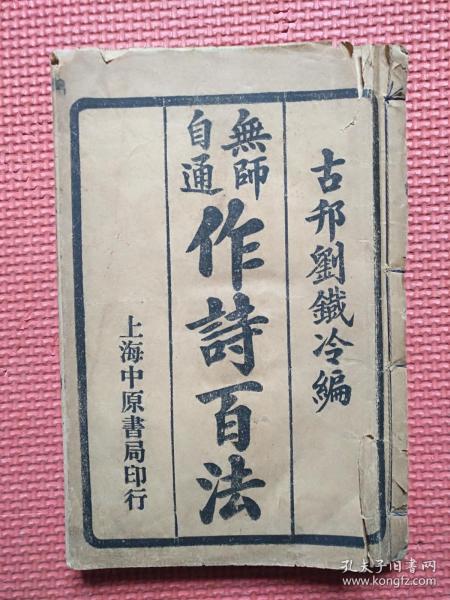 古邦劉鐵冷編
無師
自通
作詩百法
上海中原書局印行
孔夫子旧书网
www.kongfz.com